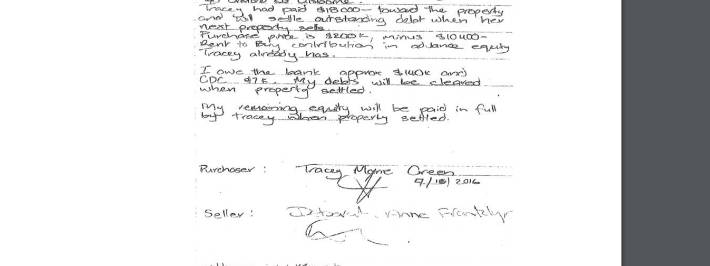 Tracey had paid $18000- toward the property
and will settle outstanding debt when her
next property sells.
Purchase price is $200K, minus $10400-
Rent to Buy contribution in advance equity
Tracey already has.
I owe the bank approx $140K and
CDC $7K. My debts will be cleared
when property settled.
My remaining equity will be paid in full
by Tracey when property settled.
Purchaser : Tracey Green
2016
Seller :